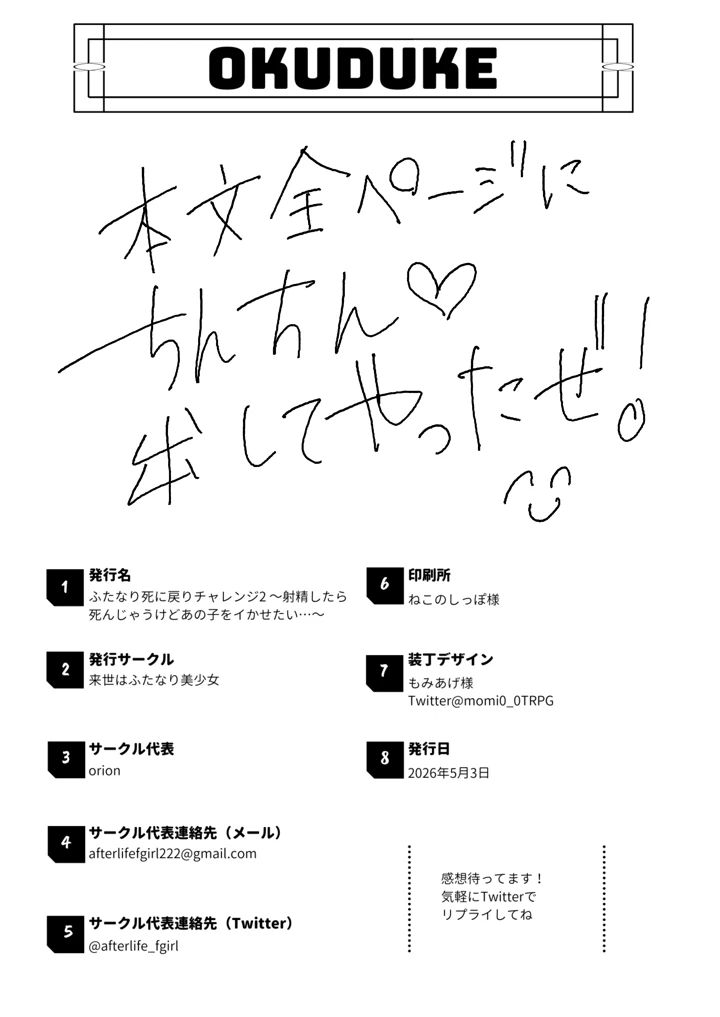 OKUDUKE
本文全ページに
ちんちん♡
出してやったぜ!
1
発行名
ふたなり死に戻りチャレンジ2 〜射精したら
死んじゃうけどあの子をイかせたい…〜
2
発行サークル
来世はふたなり美少女
3
サークル代表
orion
4
サークル代表連絡先（メール）
afterlifefgirl222@gmail.com
5
サークル代表連絡先（Twitter）
@afterlife_fgirl
6
印刷所
ねこのしっぽ様
7
装丁デザイン
もみあげ様
Twitter@momi0_0TRPG
8
発行日
2026年5月3日
感想待ってます！
気軽にTwitterで
リプライしてね